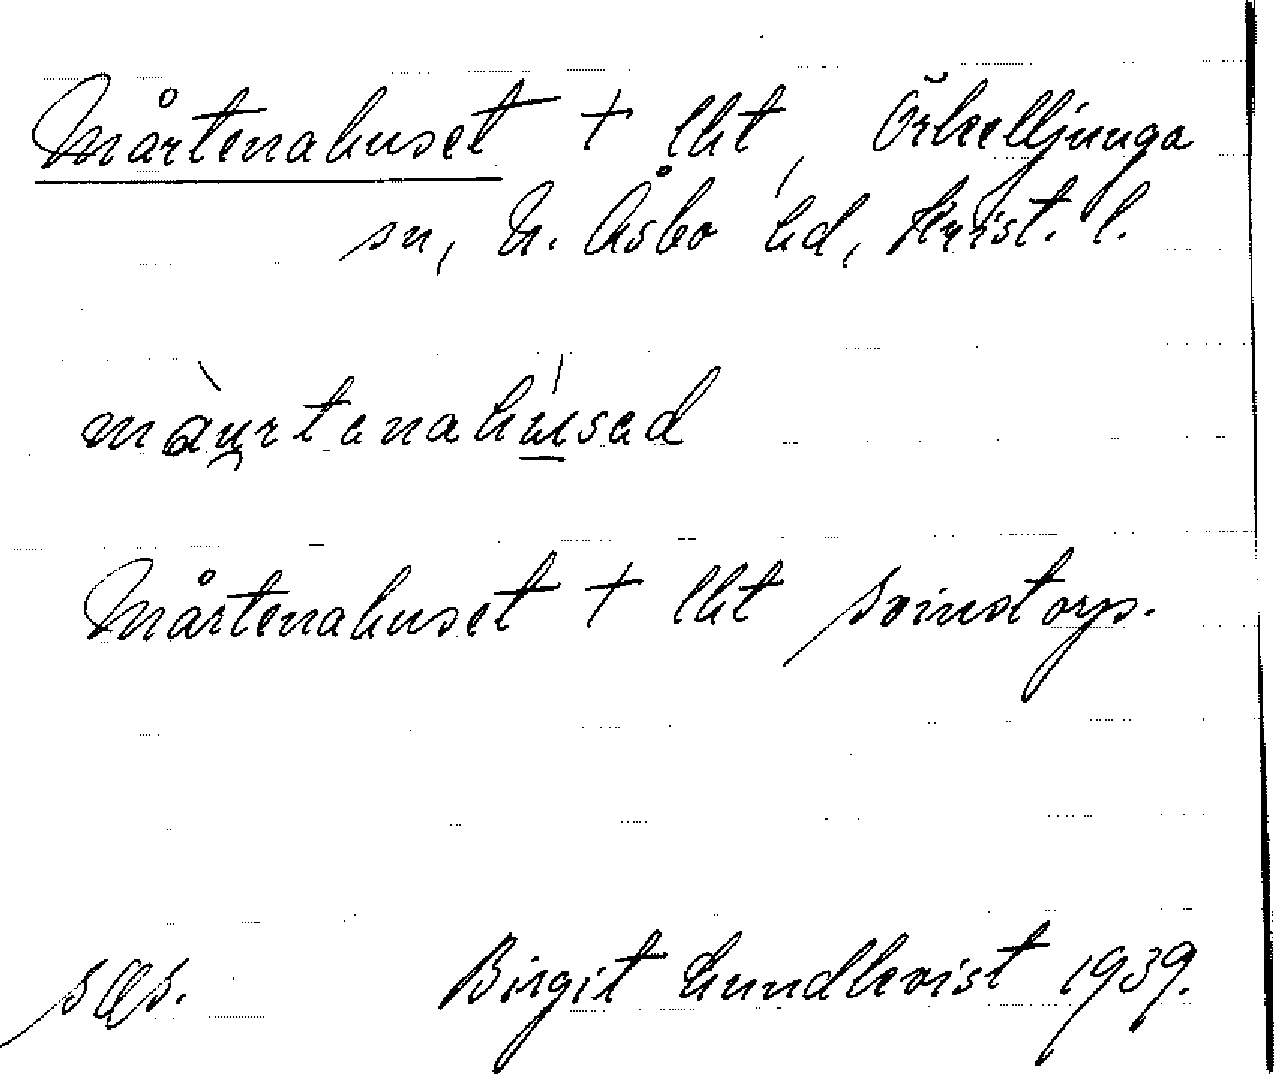 Mårtenahuset + lht, Örkelljunga
sn, N. Åsbo hd, Krist. l.
màu̯rtanahúsad
Mårtenahuset + lht Svinstorp.
sgs. Birgit Lundkvist 1939.